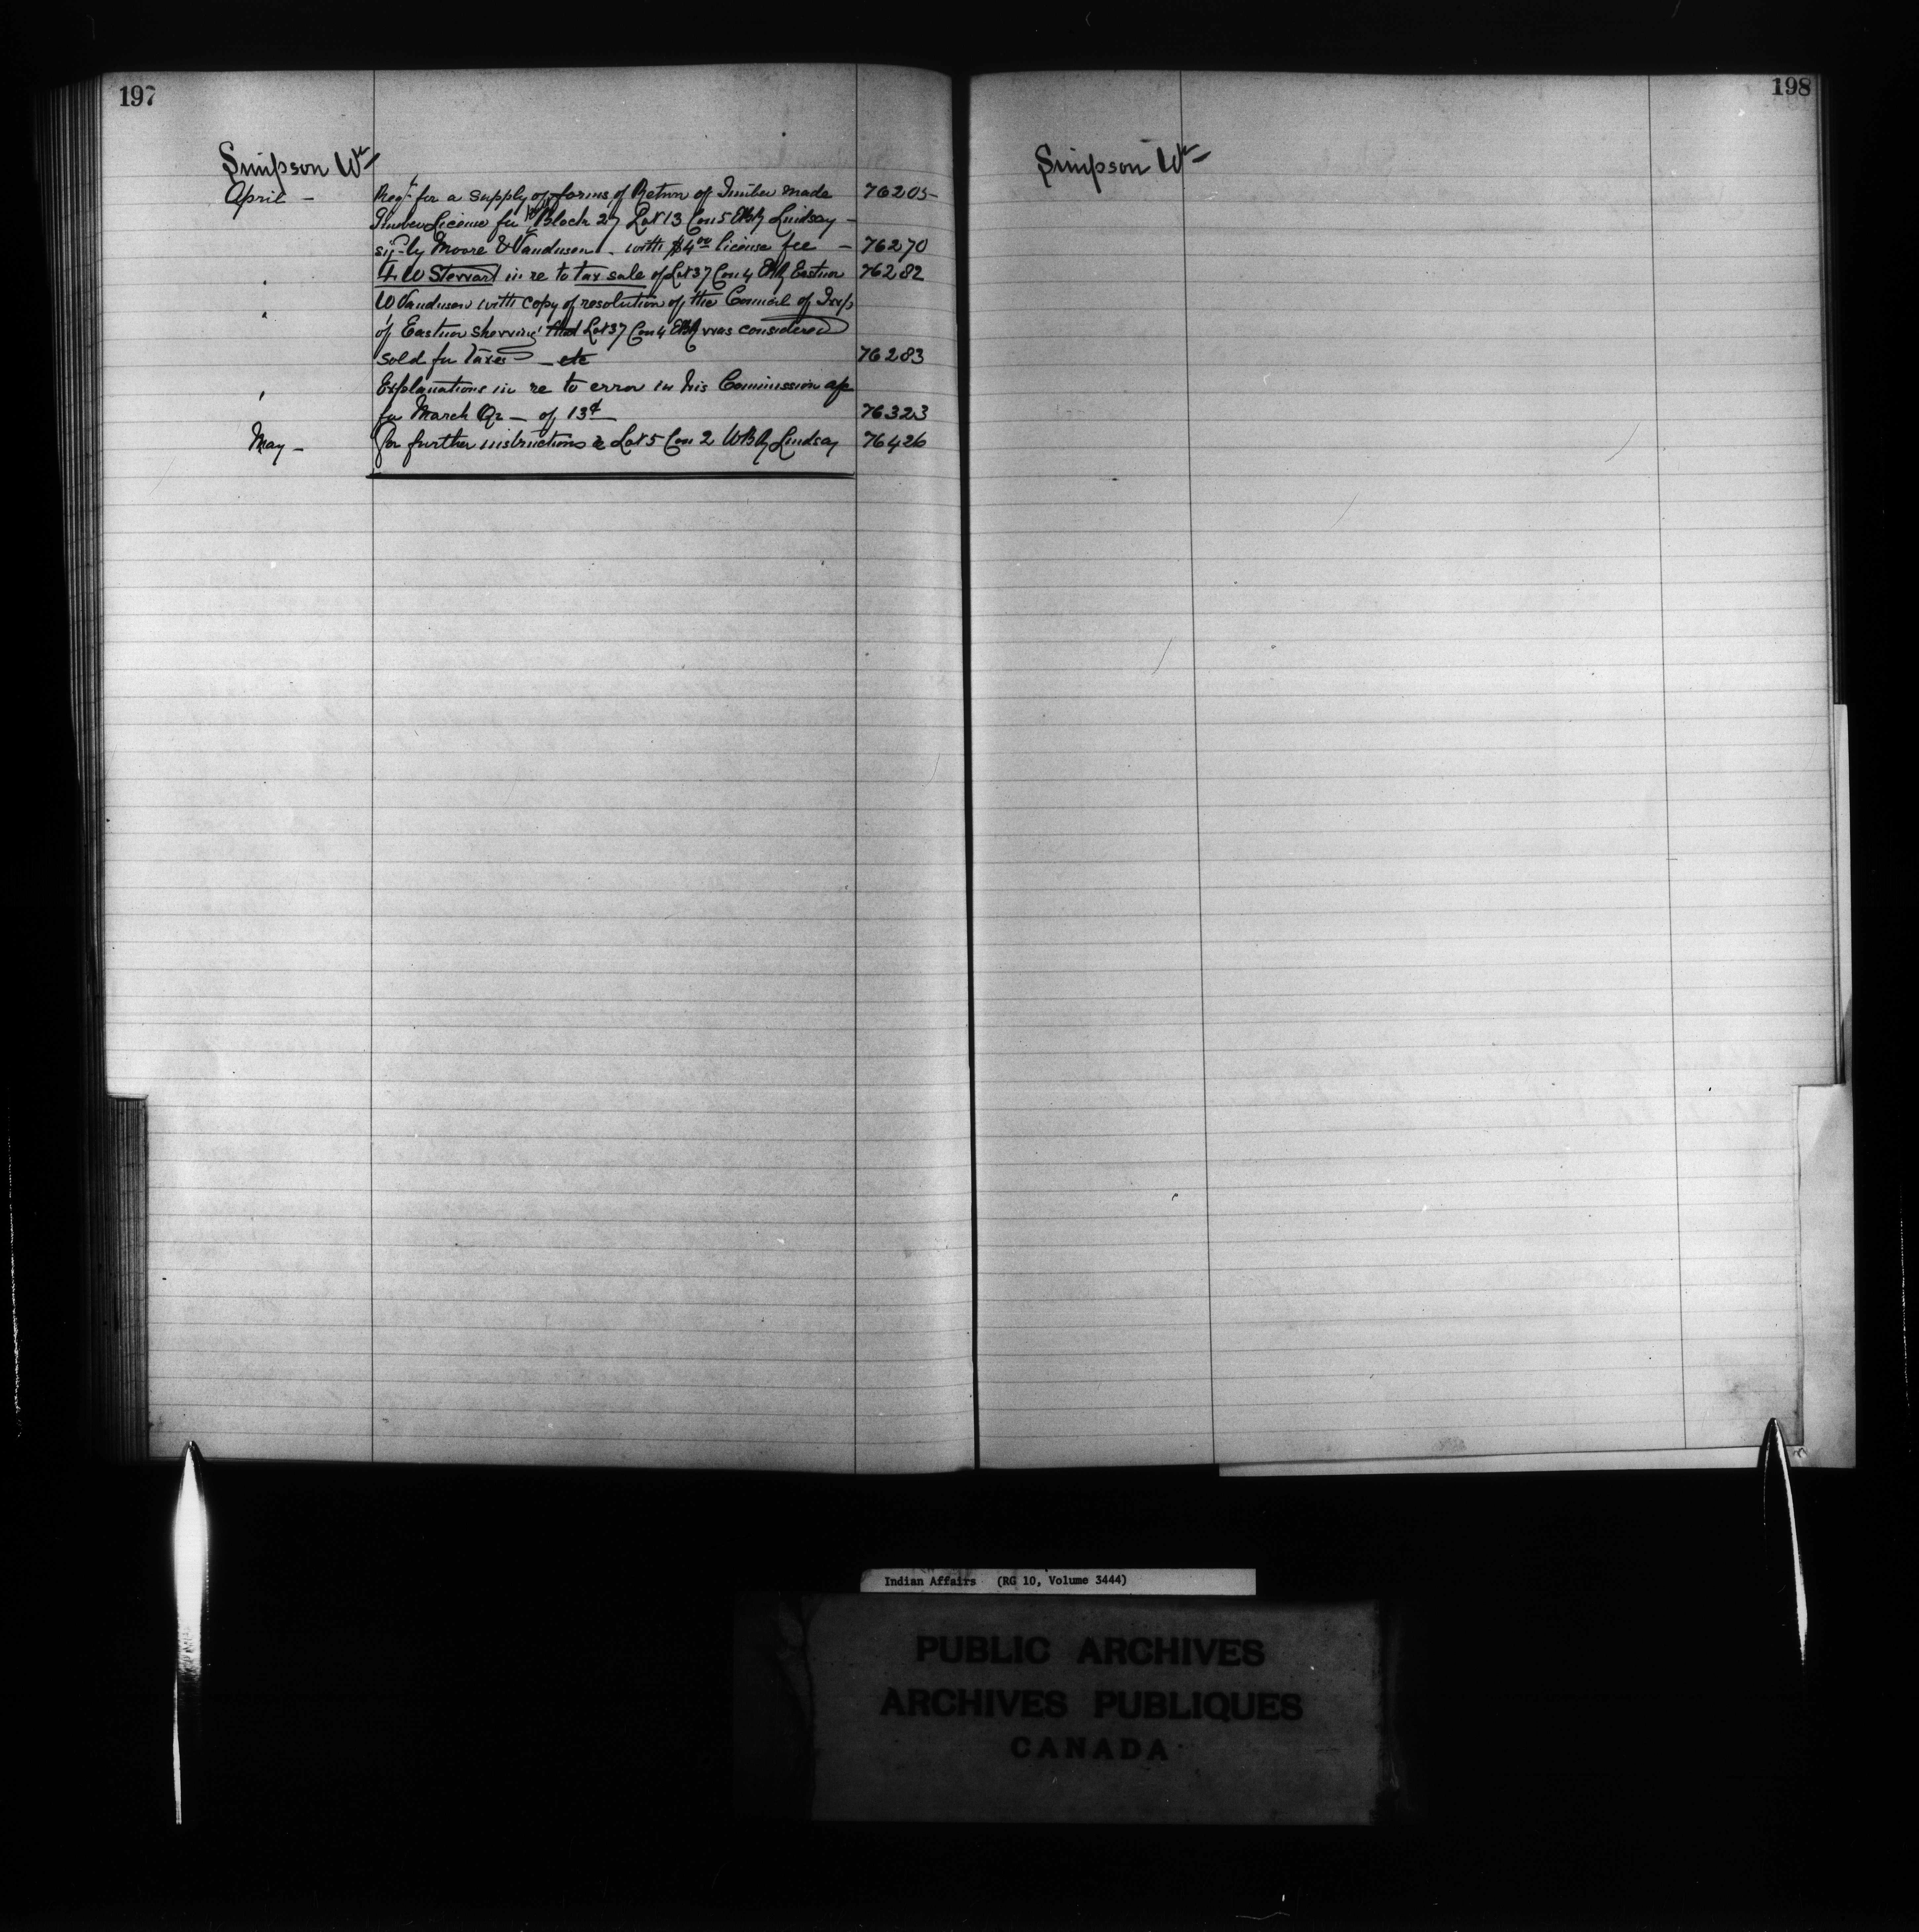 197
198
Simpson Wm
Simpson Wm
April - Reqt for a supply of forms of Return of Timber made 76205
Timber License for Block 27 Lot 13 Con 5 EBR Lindsay -
sig- by Moore & Vandusen. with $4.00 license fee - 76270
" W Stewart in re to tax sale of Lot 37 Con 4 EBR Eastnor 76282
" W Vandusen with copy of resolution of the Council of Twp
of Eastnor shewing that Lot 37 Con 4 EBR was considered
sold for taxes - etc 76283
" Explanations in re to error in his Commission a/c
for March Qr - of 13¢ 76323
May - For further instructions re Lot 5 Con 2 WBR Lindsay 76426
Indian Affairs (RG 10, Volume 3444)
PUBLIC ARCHIVES
ARCHIVES PUBLIQUES
CANADA